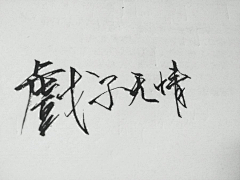 戲子无情